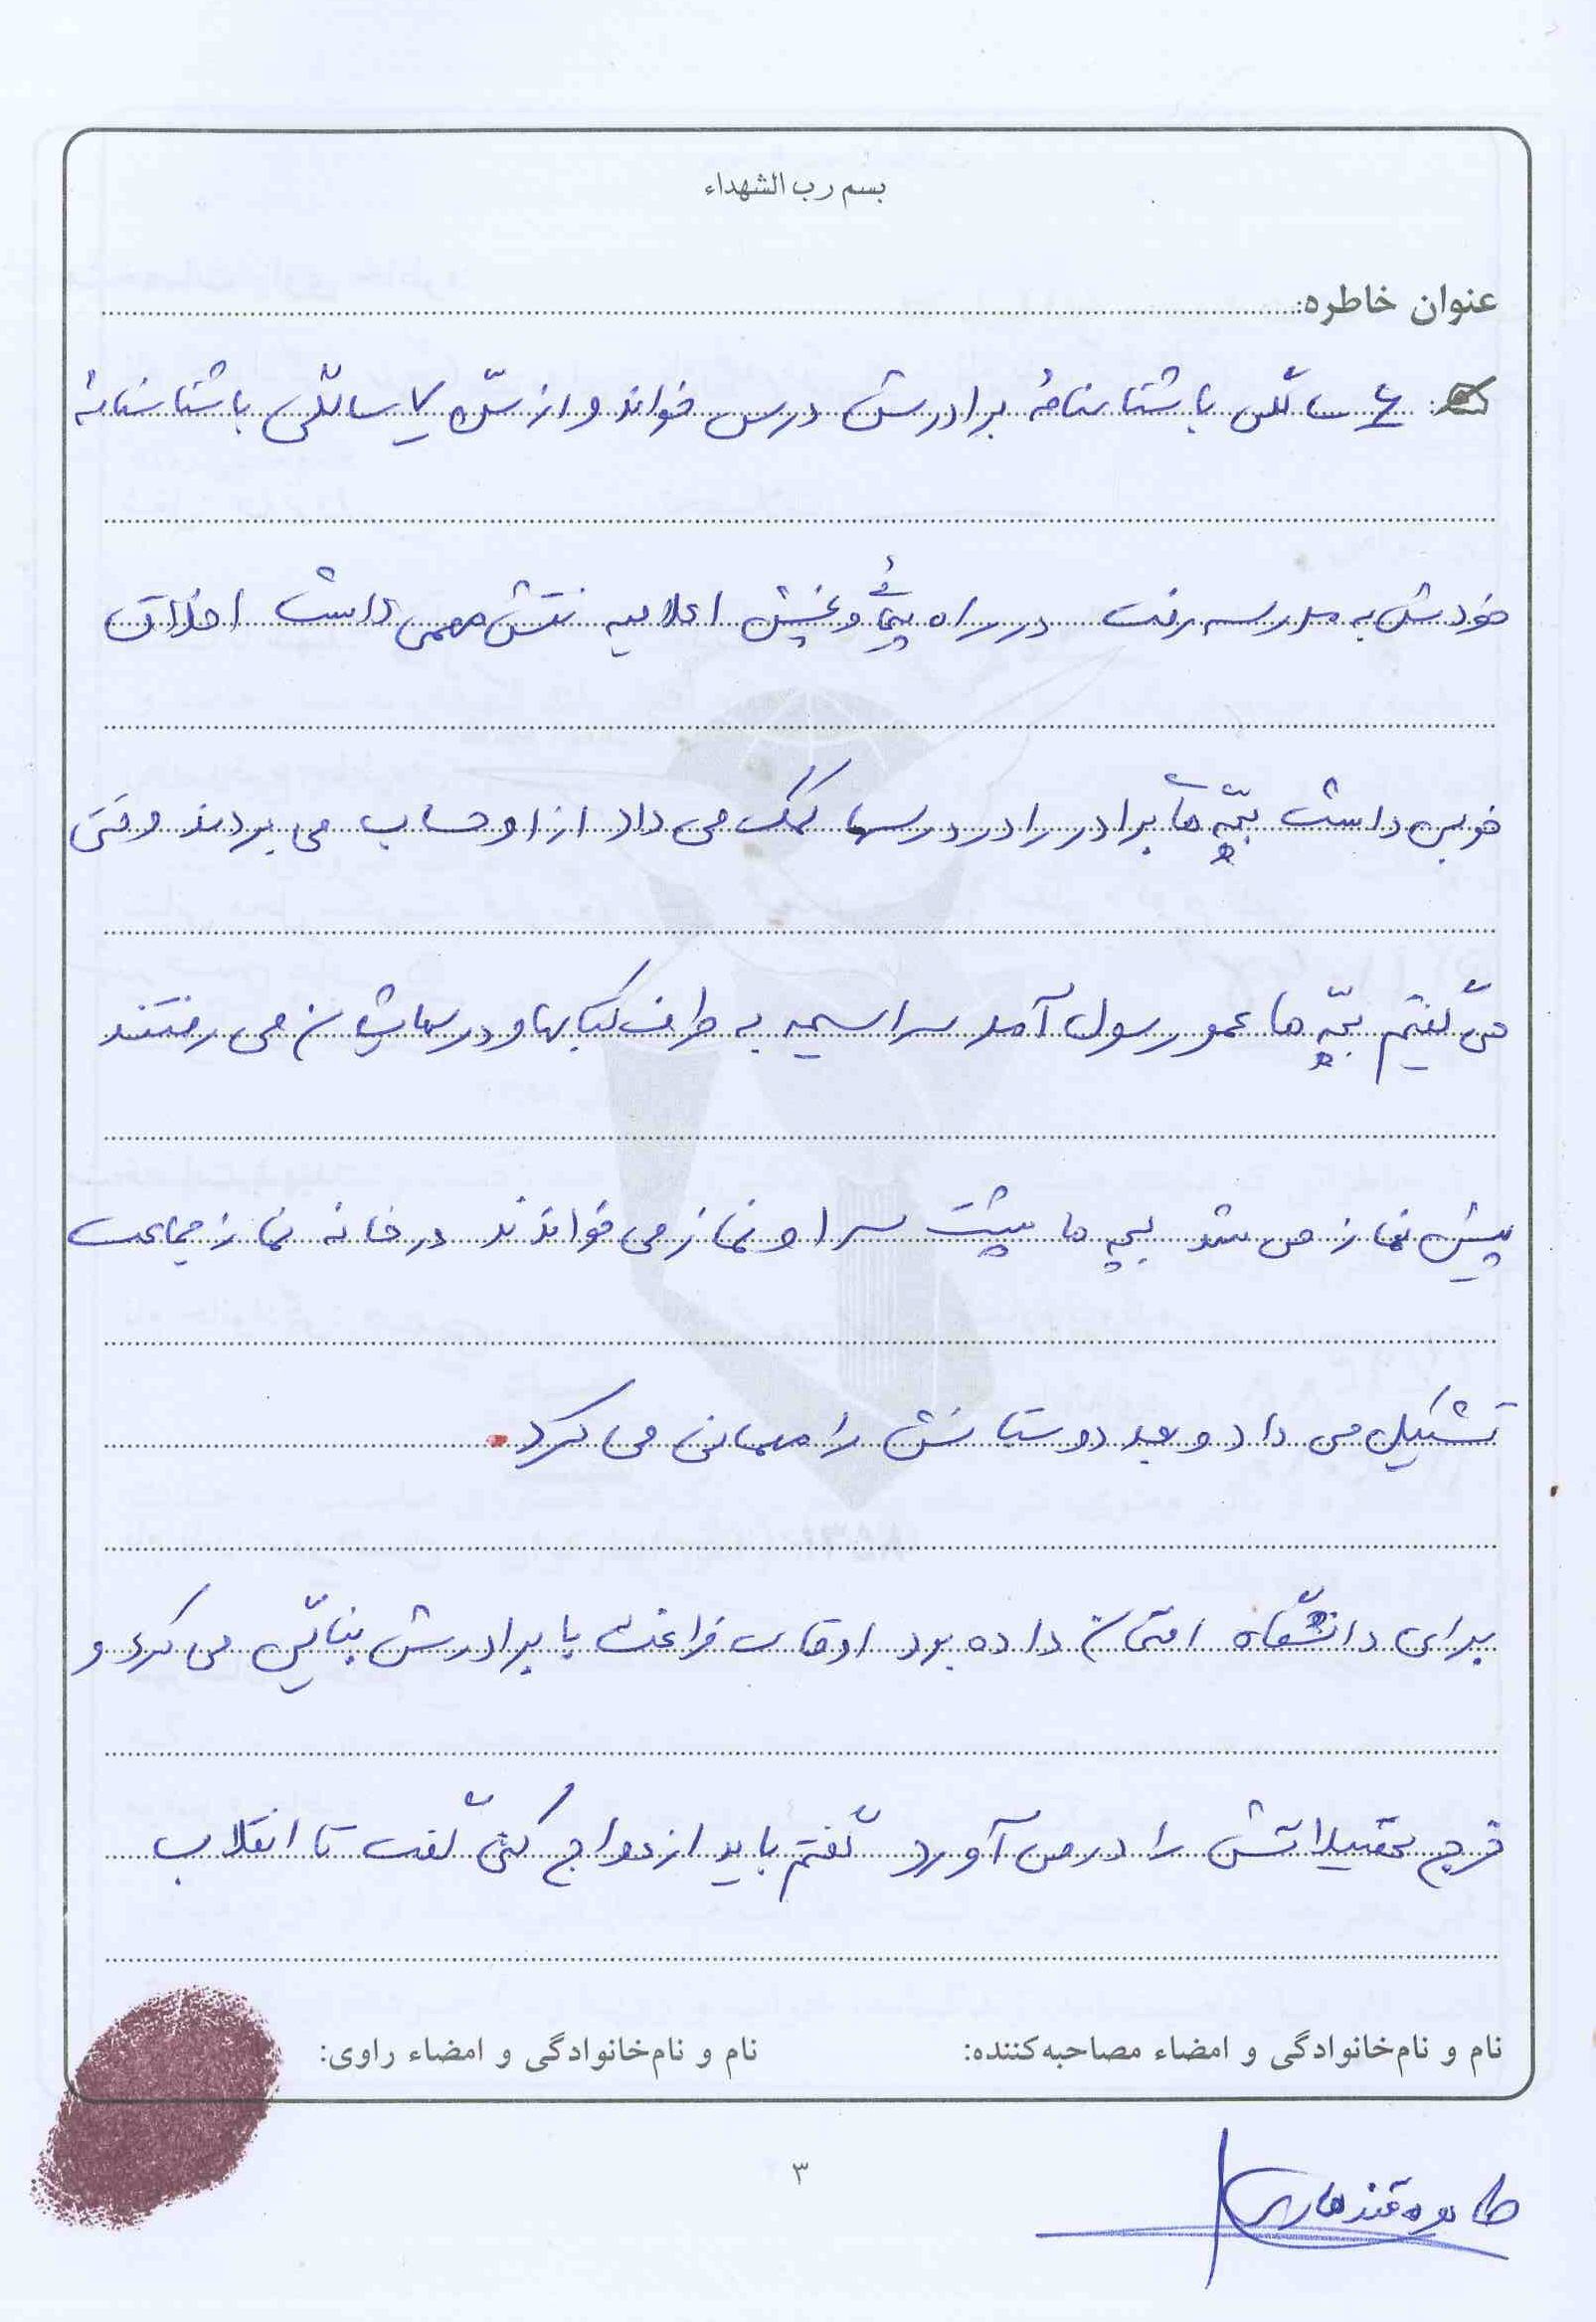 بسم رب الشهداء
عنوان خاطره:
۶ سالگی با شناسنامهٔ برادرش درس خواند و از سن ۷ سالگی با شناسنامهٔ
خودش به مدرسه رفت در راه پیمائی و پخش اعلامیه نقش مهمی داشت اخلاق
خوبی داشت بچّه های برادر را در درسها کمک می داد از او حساب می بردند وقتی
می گفتیم بچّه ها عمو رسول آمد سراسیمه به طرف کتابها و درسهایشان می رفتند
پیش نماز می شد بچه ها پشت سر او نماز می خواندند در خانه نماز جماعت
تشکیل می داد و بعد دوستانش را مهمانی می کرد.
برای دانشگاه امتحان داده بود اوقات فراغت با برادرش بنائی می کرد و
خرج تحصیلاتش را در می آورد گفتم باید ازدواج کنی گفت تا انقلاب
نام و نام‌خانوادگی و امضاء مصاحبه‌کننده:
نام و نام‌خانوادگی و امضاء راوی:
۳
طاهره قندهاری